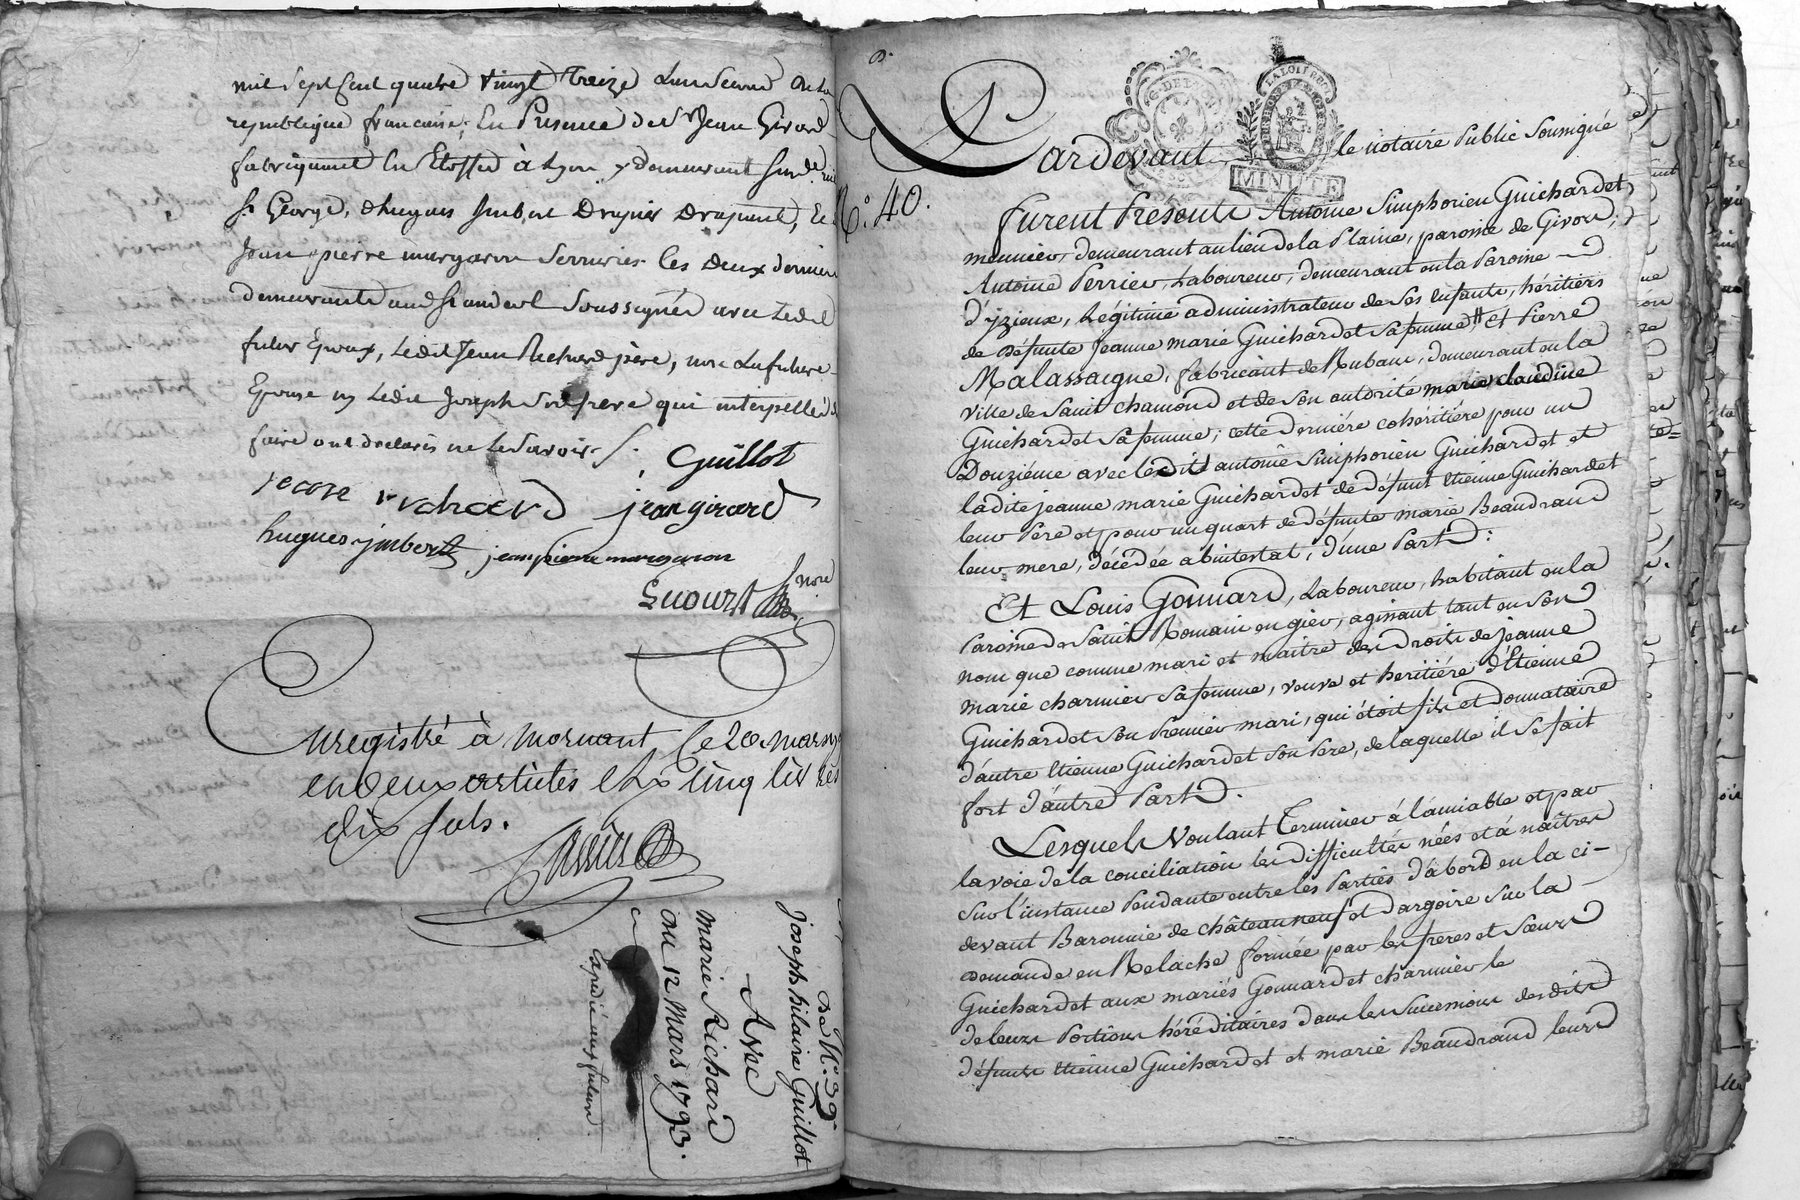 mil sept cent quatre vingt treize L'an second de la
republique francaise; En Presence de Sr Jean Girard
fabriquant En Etoffes à Lyon y demeurant rue
St George, d'hugues Imbert Drapier Drapant, Et
Jean pierre margaron Serrurier les deux derniers
demeurants audit St andeol Soussignés avec Ledit
futur Epoux, Ledit Jean Richard père, non La future
Epouse ny Ledit Joseph Son frere qui interpellés de
faire ont declarés ne le savoir
Guillot
richard jean girard
hugues jmbert jean pierre margaron
Guourt nore
Enregistré à Mornant le 20 mars 1793
en deux articles et cinq livres
dix sols.
Du N.° 39
Joseph hilaire Guillot
Avec
marie Richard
du 12 Mars 1793.
Expedié aux futurs
N.° 40.
LA LOI ET LE ROI
MINUTE
Pardevant le notaire Public Soussigné
furent Présents Antoine Simphorien Guichardet,
meunier, demeurant au lieu de la Plaine, paroisse de Givors;
Antoine Perrier, Laboureur, demeurant en la Paroisse
d'yzieux, Légitime administrateur de Ses enfants, héritiers
de défunte jeanne marie Guichardet Sa femme # et Pierre
Malassaigne, fabricant de Rubans, demeurant en la
ville de Saint chamond et de Son autorité marie claudine
Guichardet Sa femme; cette derniére cohéritiére pour un
Douziéme avec lesdits antoine Simphorien Guichardet et
ladite jeanne marie Guichardet de défunt Etienne Guichardet
leur Pere et pour un quart de défunte marie Beaudrand
leur mere, décédée abintestat, d'une Part:
Et Louis Gonnard, Laboureur, habitant en la
Paroisse de Saint Romain en gier, agissant tant en Son
nom que comme mari et maître des droits de jeanne
marie charmier Sa femme, veuve et heritiére d'Etienne
Guichardet Son Premier mari, qui étoit fils et donnataire
d'autre Etienne Guichardet Son Pere, de laquelle il Se fait
fort d'autre Part.
Lesquels Voulant Terminer à l'amiable et par
la voie de la conciliation les difficultés nées et à naîtres
Sur l'instance Pendante entre les Parties d'abord en la ci-
devant Baronnie de châteauneuf et dargoire Sur la
Demande en Relache formée par les freres et Sœurs
Guichardet aux mariés Gonnard et charmier le
de leurs Portions héréditaires dans les Successions desdits
défunts Etienne Guichardet et marie Beaudrand leurs